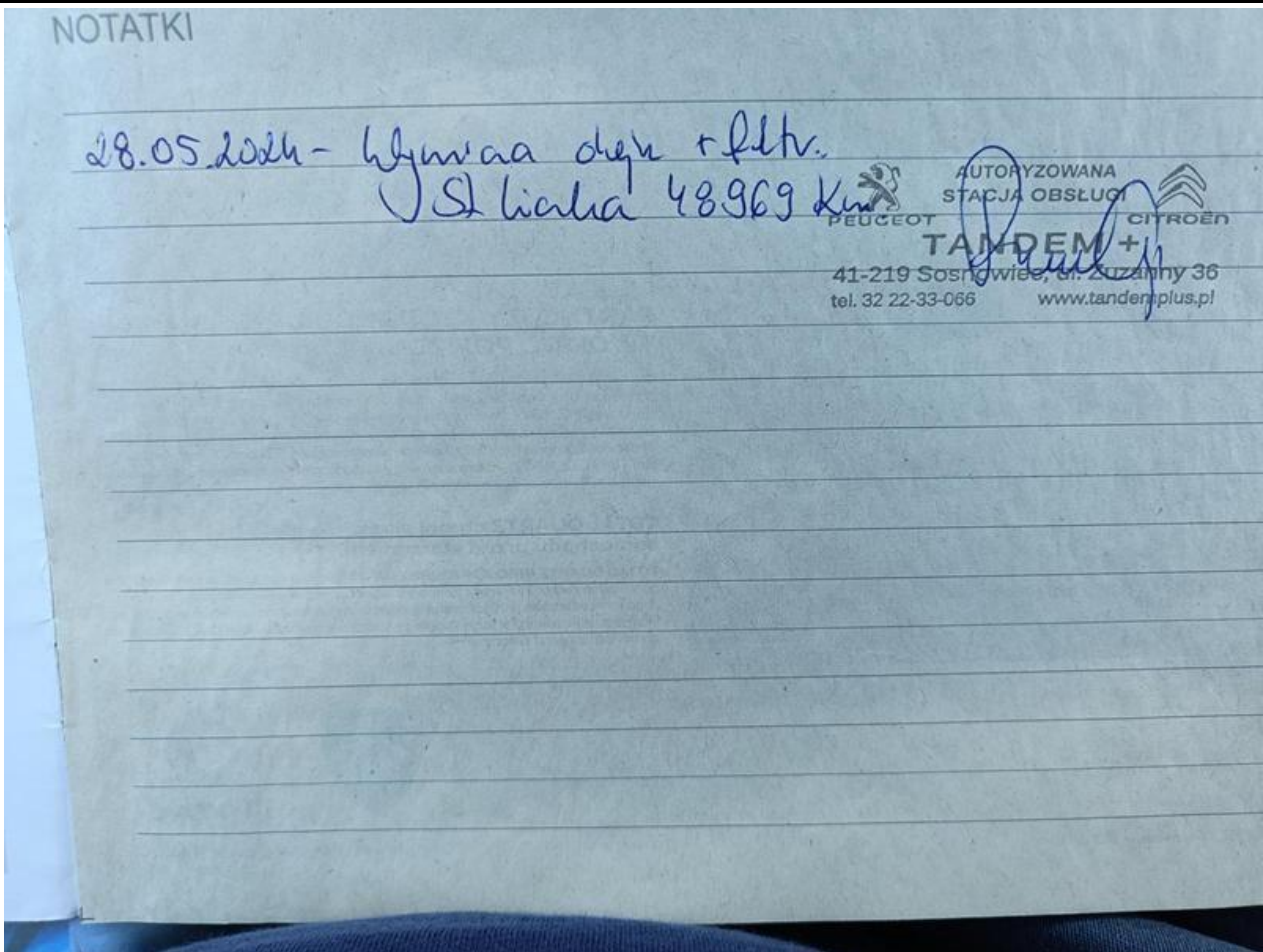 NOTATKI
28.05.2024 - Wymiana oleju + filtr.
St licznika 48969 Km
AUTORYZOWANA
STACJA OBSŁUGI
PEUGEOT CITROËN
TANDEM +
41-219 Sosnowiec, ul. Zuzanny 36
tel. 32 22-33-066 www.tandemplus.pl